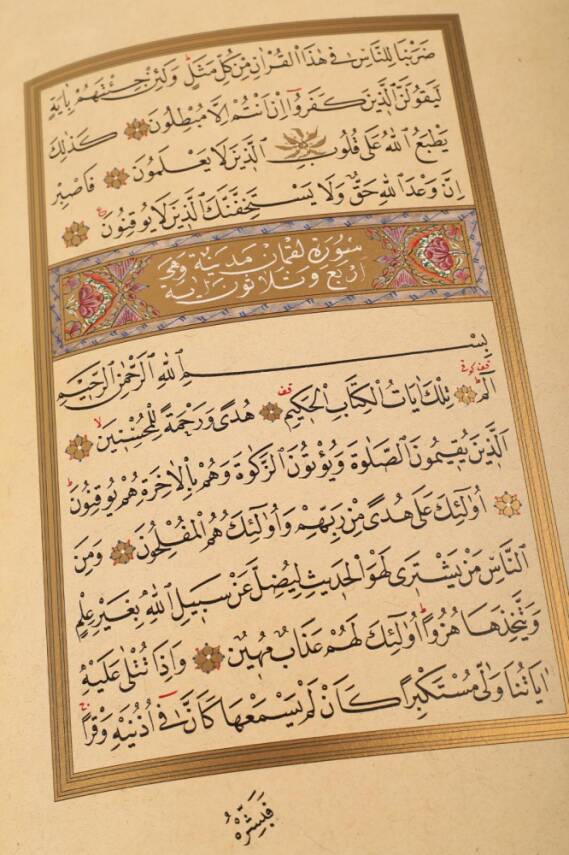 ضَرَبْنَا لِلنَّاسِ فِى هٰذَا الْقُرْاٰنِ مِنْ كُلِّ مَثَلٍ وَلَئِنْ جِئْتَهُمْ بِاٰيَةٍ
لَيَقُولَنَّ الَّذِينَ كَفَرُوا اِنْ اَنْتُمْ اِلَّا مُبْطِلُونَ كَذٰلِكَ
يَطْبَعُ اللّٰهُ عَلٰى قُلُوبِ الَّذِينَ لَا يَعْلَمُونَ فَاصْبِرْ
اِنَّ وَعْدَ اللّٰهِ حَقٌّ وَلَا يَسْتَخِفَّنَّكَ الَّذِينَ لَا يُوقِنُونَ ع
سورة لقمان مدنية وهى
اربع وثلاثون اية
بِسْمِ اللّٰهِ الرَّحْمٰنِ الرَّحِيمِ
الٓمٓ قف كوفى تِلْكَ اٰيَاتُ الْكِتَابِ الْحَكِيمِ قف هُدًى وَرَحْمَةً لِلْمُحْسِنِينَ لا
اَلَّذِينَ يُقِيمُونَ الصَّلٰوةَ وَيُؤْتُونَ الزَّكٰوةَ وَهُمْ بِالْاٰخِرَةِ هُمْ يُوقِنُونَ ط
اُولٰئِكَ عَلٰى هُدًى مِنْ رَبِّهِمْ وَاُولٰئِكَ هُمُ الْمُفْلِحُونَ وَمِنَ
النَّاسِ مَنْ يَشْتَرِى لَهْوَ الْحَدِيثِ لِيُضِلَّ عَنْ سَبِيلِ اللّٰهِ بِغَيْرِ عِلْمٍ
وَيَتَّخِذَهَا هُزُوًا ط اُولٰئِكَ لَهُمْ عَذَابٌ مُهِينٌ وَاِذَا تُتْلٰى عَلَيْهِ
اٰيَاتُنَا وَلّٰى مُسْتَكْبِرًا كَاَنْ لَمْ يَسْمَعْهَا كَاَنَّ فِى اُذُنَيْهِ وَقْرًا ج
فَبَشِّرْهُ